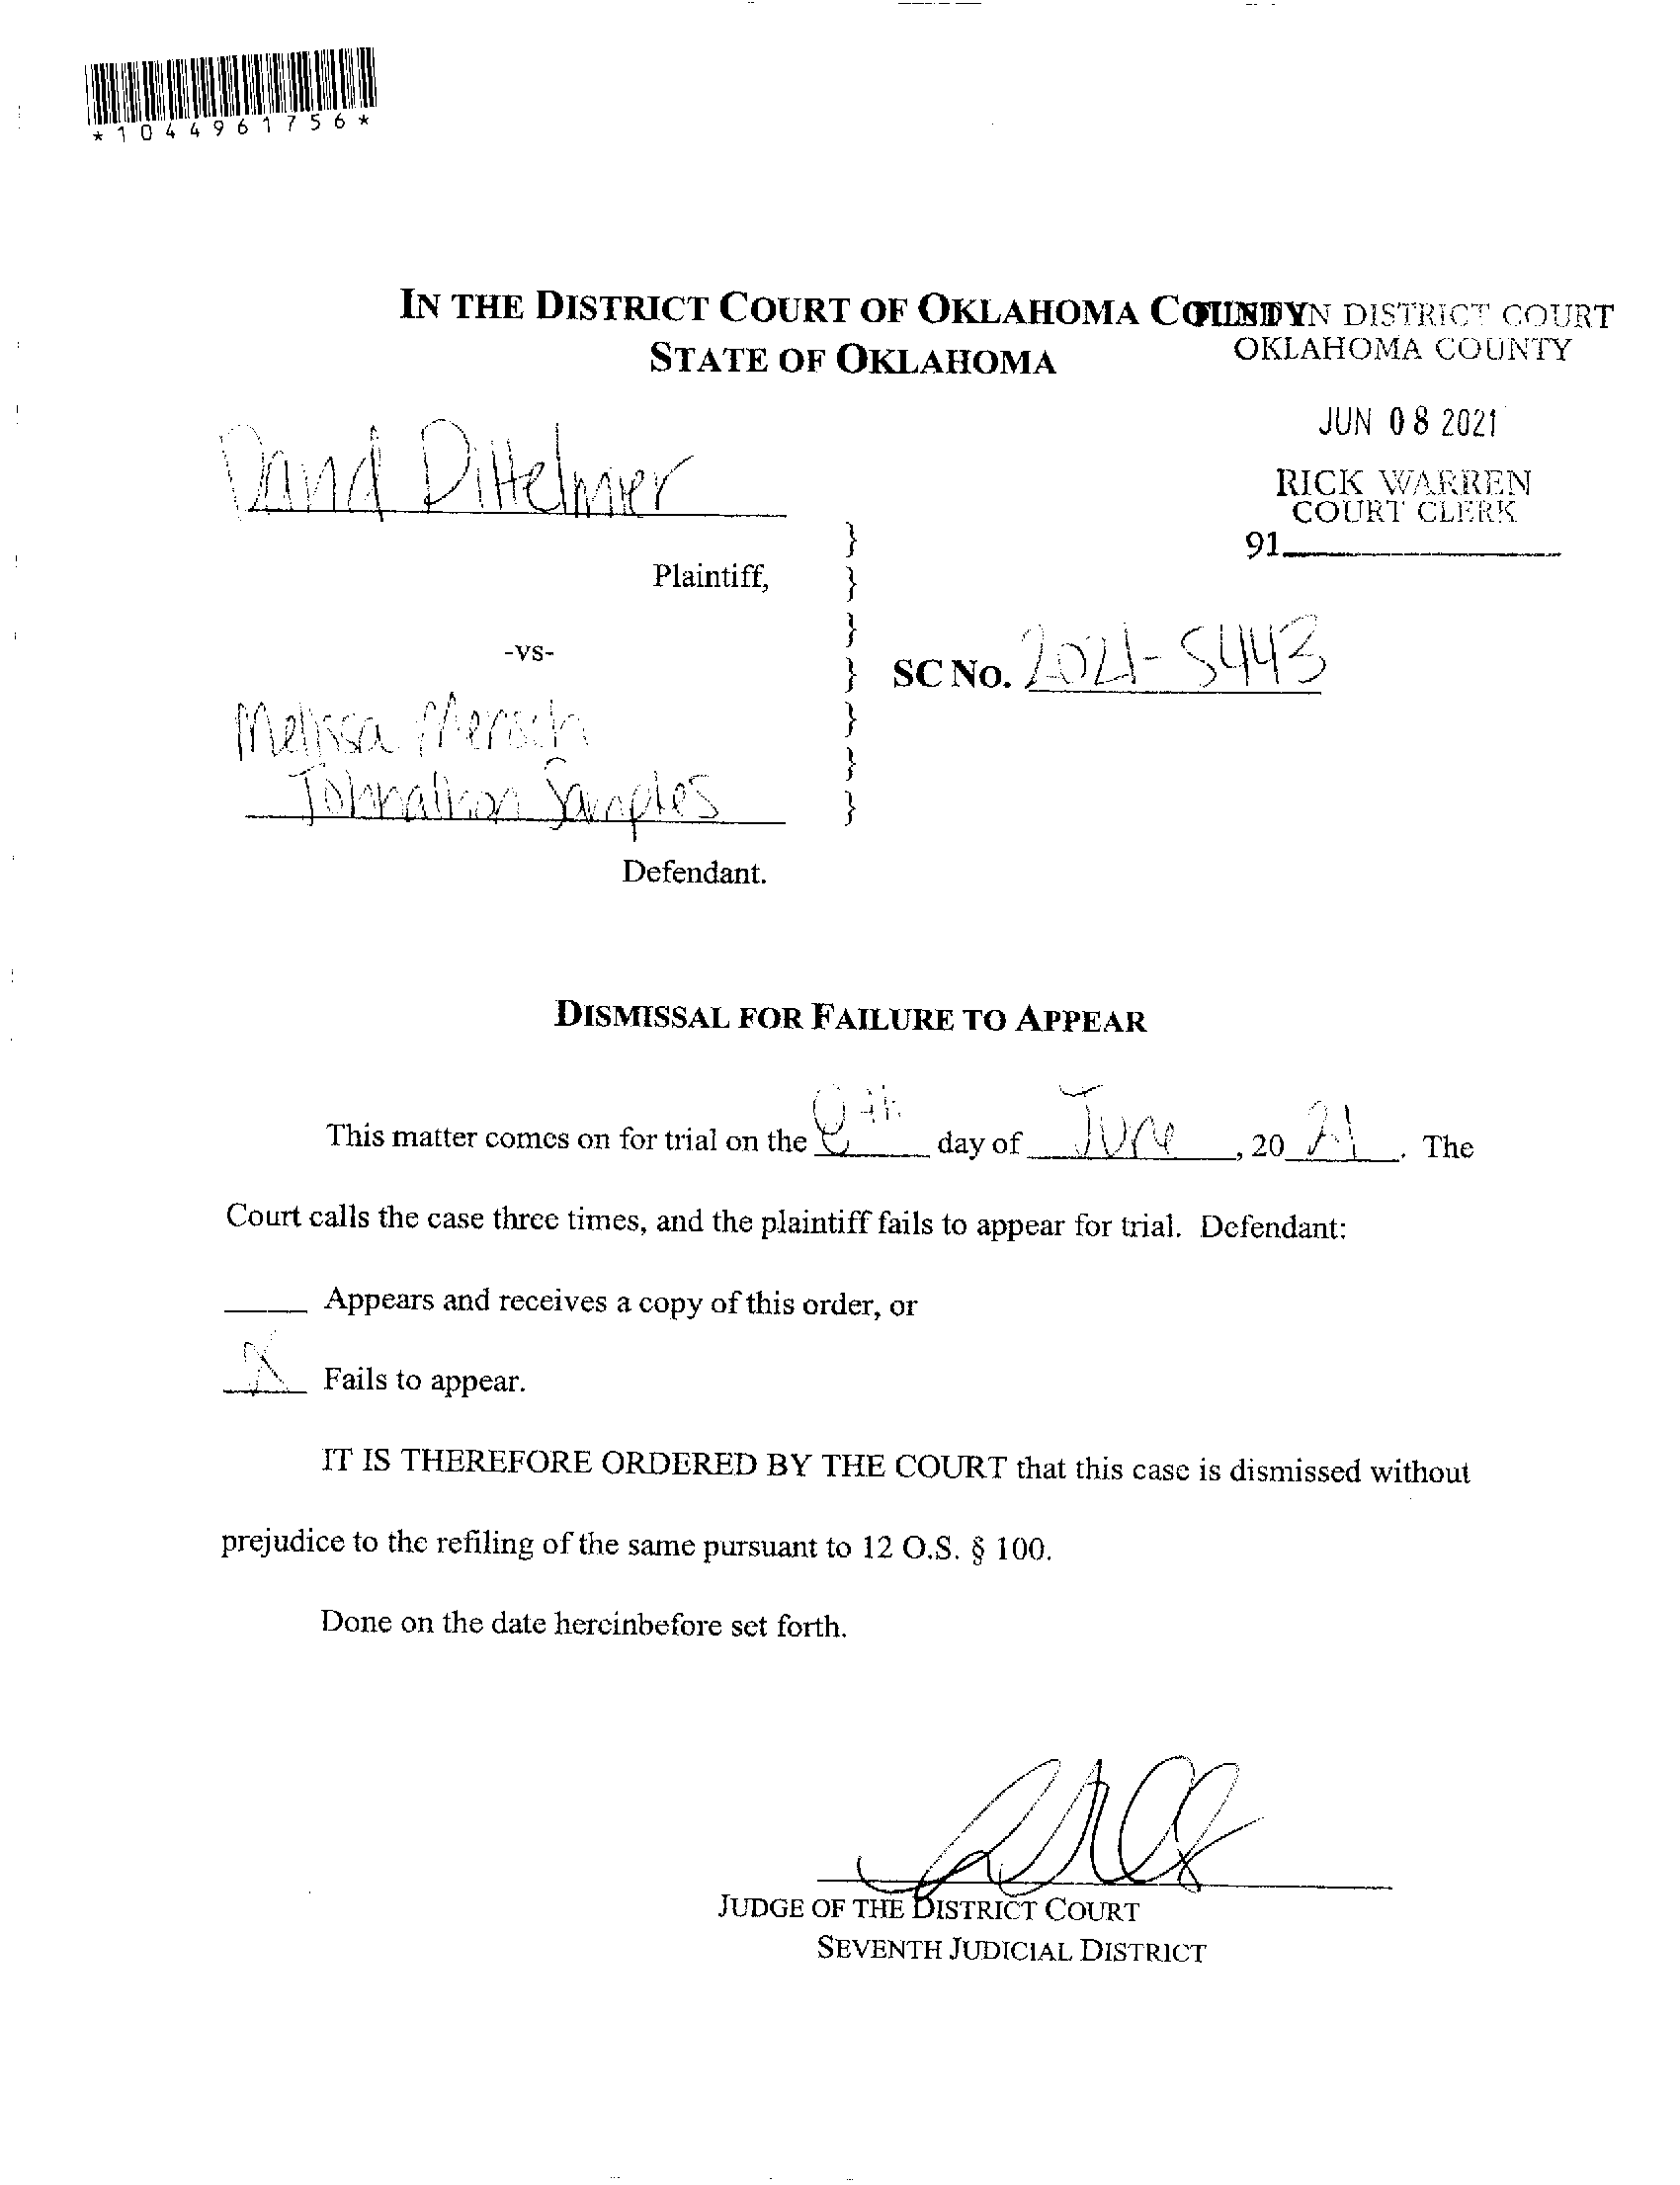 *1044961756*
IN THE DISTRICT COURT OF OKLAHOMA COUNTY
STATE OF OKLAHOMA
FILED IN DISTRICT COURT
OKLAHOMA COUNTY
JUN 08 2021
RICK WARREN
COURT CLERK
91
David Dittelmier
Plaintiff,
-vs-
SC NO. 2021-5443
Melissa Mersch
Samples
Defendant.
}
}
}
}
}
}
}
DISMISSAL FOR FAILURE TO APPEAR
This matter comes on for trial on the 8th day of June, 2021. The
Court calls the case three times, and the plaintiff fails to appear for trial. Defendant:
Appears and receives a copy of this order, or
X Fails to appear.
IT IS THEREFORE ORDERED BY THE COURT that this case is dismissed without
prejudice to the refiling of the same pursuant to 12 O.S. § 100.
Done on the date hereinbefore set forth.
JUDGE OF THE DISTRICT COURT
SEVENTH JUDICIAL DISTRICT